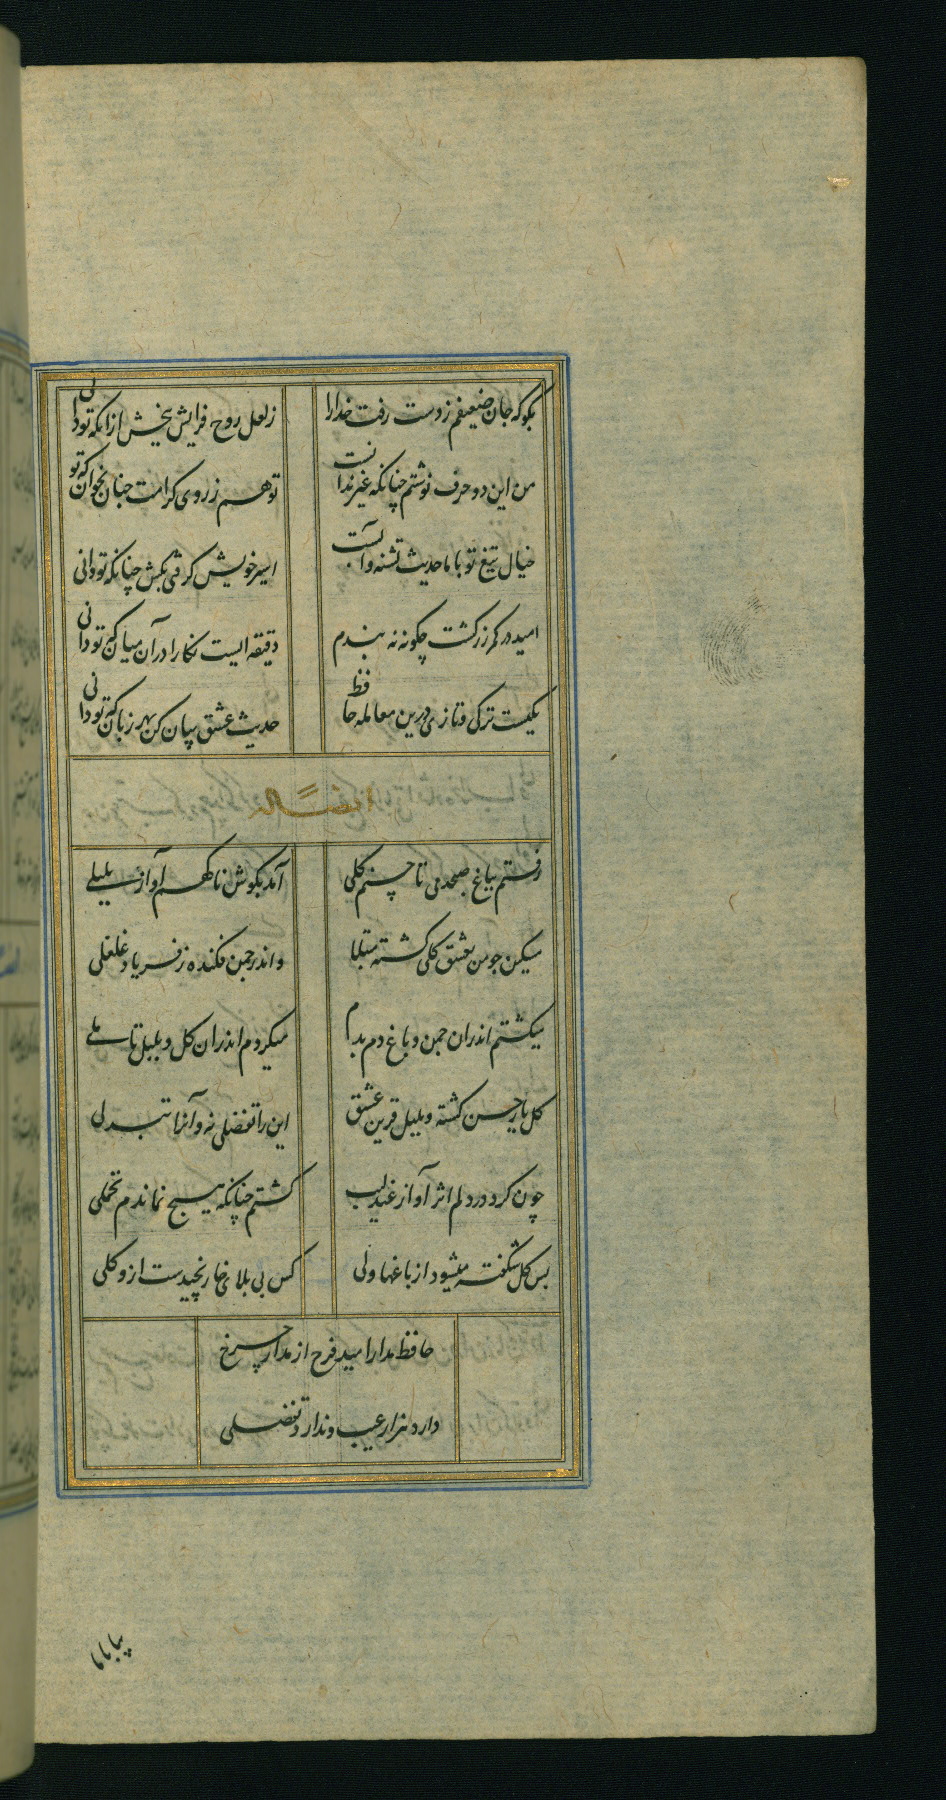 بگو که جان ضعیفم ز دست رفت خدارا
ز لعل روح فزایش ببخش ازانکه تو دانی
من این دو حرف نوشتم چنانکه غیر ندانست
تو هم ز روی کرامت چنان بخوان که تو
خیال تیغ تو با ما حدیث تشنه و آبست
اسیر خویش گرفتی بکش چنانکه تو دانی
امید در کمر زرکشت چگونه نه بندم
دقیقه ایست نگارا در آن میان که تو دانی
یکیست ترکی و تازی درین معامله حافظ
حدیث عشق بیان کن بهر زبان که تو دانی
ایضاً له
رفتم بباغ صبحدمی تا چنم گلی
آمد بگوش ناگهم آواز بلبلی
مسکین چو من بعشق گلی گشته مبتلا
و اندر چمن فکنده ز فریاد غلغلی
میگشتم اندران چمن و باغ دم بدم
میکردم اندران گل و بلبل تاملی
گل یار حسن گشته و بلبل قرین عشق
این را تفضلی نه و آنرا تبدلی
چون کرد در دلم اثر آواز عندلیب
گشتم چنانکه هیچ نماندم تحملی
بس گل شگفته میشود از باغها ولی
کس بی بلای خار نچیدست ازو گلی
حافظ مدار امید فرح از مدار چرخ
دارد هزار عیب و ندارد تفضلی